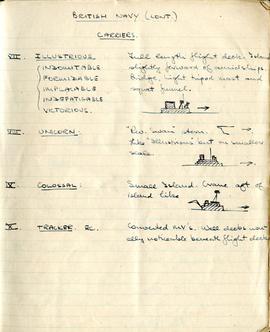 BRITISH NAVY (CONT.)
CARRIERS.
VII. ILLUSTRIOUS Full length flight deck. Island
INDOMITABLE slightly forward of amidships
FORMIDABLE Bridge, light tripod mast and
IMPLACABLE squat funnel.
INDEFATIGABLE
VICTORIOUS.
VIII. UNICORN. stern.
Like 'Illustrious' but on smaller
scale
IX. COLOSSAL: Small Island. Crane aft of
island like
X. TRACKER &c. Converted M.V's. Well decks usu-
ally noticeable beneath flight deck